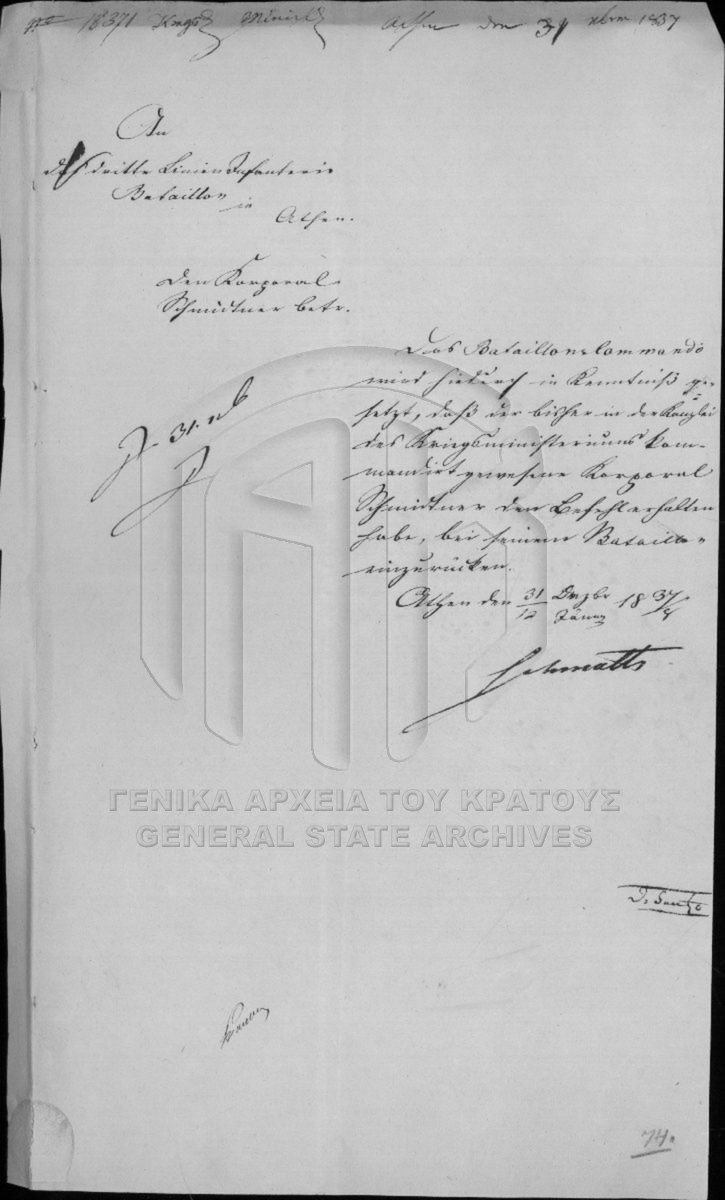 No 18371 Kriegs Minist Athen den 31 xbre 1837
An
das dritte Linien Infanterie
Bataillon
in
Athen.
Den Korporal
Schmidtner betr.
Das Bataillons Commando
wird hiedurch in Kenntniß ge-
setzt, daß der bisher in der Kanzlei
des Kriegsministeriums kom-
mandirt gewesene Korporal
Schmidtner den Befehl erhalten
habe, bei seinem Bataillon
einzurücken.
Athen den 31/12 Dezbr/Jäner 1837/8
Schmaltz
31.
ΓΕΝΙΚΑ ΑΡΧΕΙΑ ΤΟΥ ΚΡΑΤΟΥΣ
GENERAL STATE ARCHIVES
74.